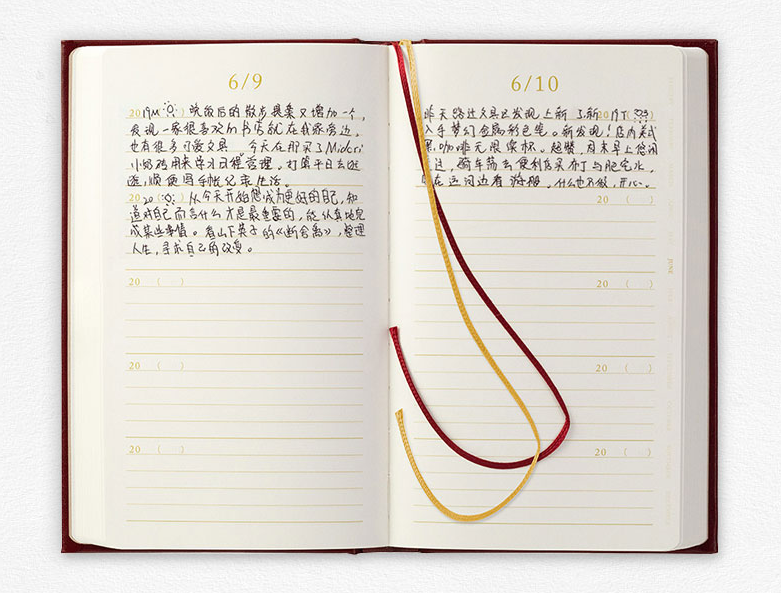 6/9
2019M(☼)晚饭后的散步提案又增加一个,
发现一家很喜欢的书店就在我家旁边,
也有很多可爱文具 今天在那买了Midori
小鸡鸡用来学习日程管理。打算平日去逛
逛,顺便写手帐纪录生活。
2020(☼)从今天开始想成为更好的自己,知
道对自己而言什么才是最重要的,能认真地完
成某些事情。看山下英子的《断舍离》,整理
人生,寻求自己的改变。
20 ( )
20 ( )
20 ( )
6/10
昨天路过文具店发现上新了,新2019T( )
入手梦幻金属彩色笔。新发现!店内美式
咖啡无限续杯。超赞,周末早上悠闲
过,骑车荡去便利店买布丁与肥宅水,
在运河边看游船,什么也不做,开心。
20 ( )
20 ( )
20 ( )
20 ( )
JUNE